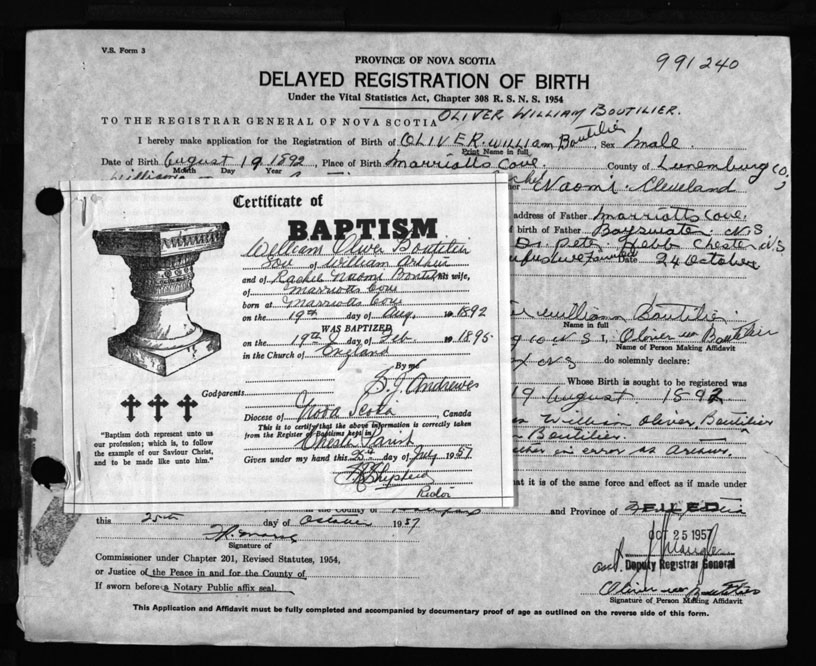 V.S. Form 3
991240
PROVINCE OF NOVA SCOTIA
DELAYED REGISTRATION OF BIRTH
Under the Vital Statistics Act, Chapter 308 R. S. N. S. 1954
TO THE REGISTRAR GENERAL OF NOVA SCOTIA OLIVER WILLIAM BOUTILIER.
I hereby make application for the Registration of Birth of OLIVER. WILLIAM Boutilier, Sex Male
Print Name in full
Date of Birth August 19 1892, Place of Birth Marriotts Cove. County of Lunenburg Co.
Month Day Year
Naomi. Cleveland
address of Father Marriotts Cove,
of birth of Father Bayswater N.S
Dr. Pete. Hebb Chester N/S
Date 24 October
William Boutilier.
Name in full
N S I, Oliver Wm Boutilier
Name of Person Making Affidavit
N S do solemnly declare:
Whose Birth is sought to be registered was
19 August 1892
William Oliver. Boutilier
Boutilier.
in error as Arthur.
at it is of the same force and effect as if made under
in the County of Halifax and Province of
this 25th day of October 1957
Signature of
Commissioner under Chapter 201, Revised Statutes, 1954,
or Justice of the Peace in and for the County of
If sworn before a Notary Public affix seal.
FILED
OCT 25 1957
Deputy Registrar General
Oliver Wm Boutilier
Signature of Person Making Affidavit
This Application and Affidavit must be fully completed and accompanied by documentary proof of age as outlined on the reverse side of this form.
Certificate of
BAPTISM
William Oliver Boutilier
Son of William Arthur
and of Rachel Naomi Boutilier his wife,
of Marriotts Cove
born at Marriotts Cove
on the 19th day of Aug. 1892
WAS BAPTIZED
on the 19th day of Feb 1895
in the Church of England
By me
S. J. Andrewes
Godparents
Diocese of Nova Scotia Canada
This is to certify that the above information is correctly taken
from the Register of Baptisms kept in
Chester Parish
Given under my hand this 25th day of July 1957
Rector
"Baptism doth represent unto us
our profession; which is, to follow
the example of our Saviour Christ,
and to be made like unto him."